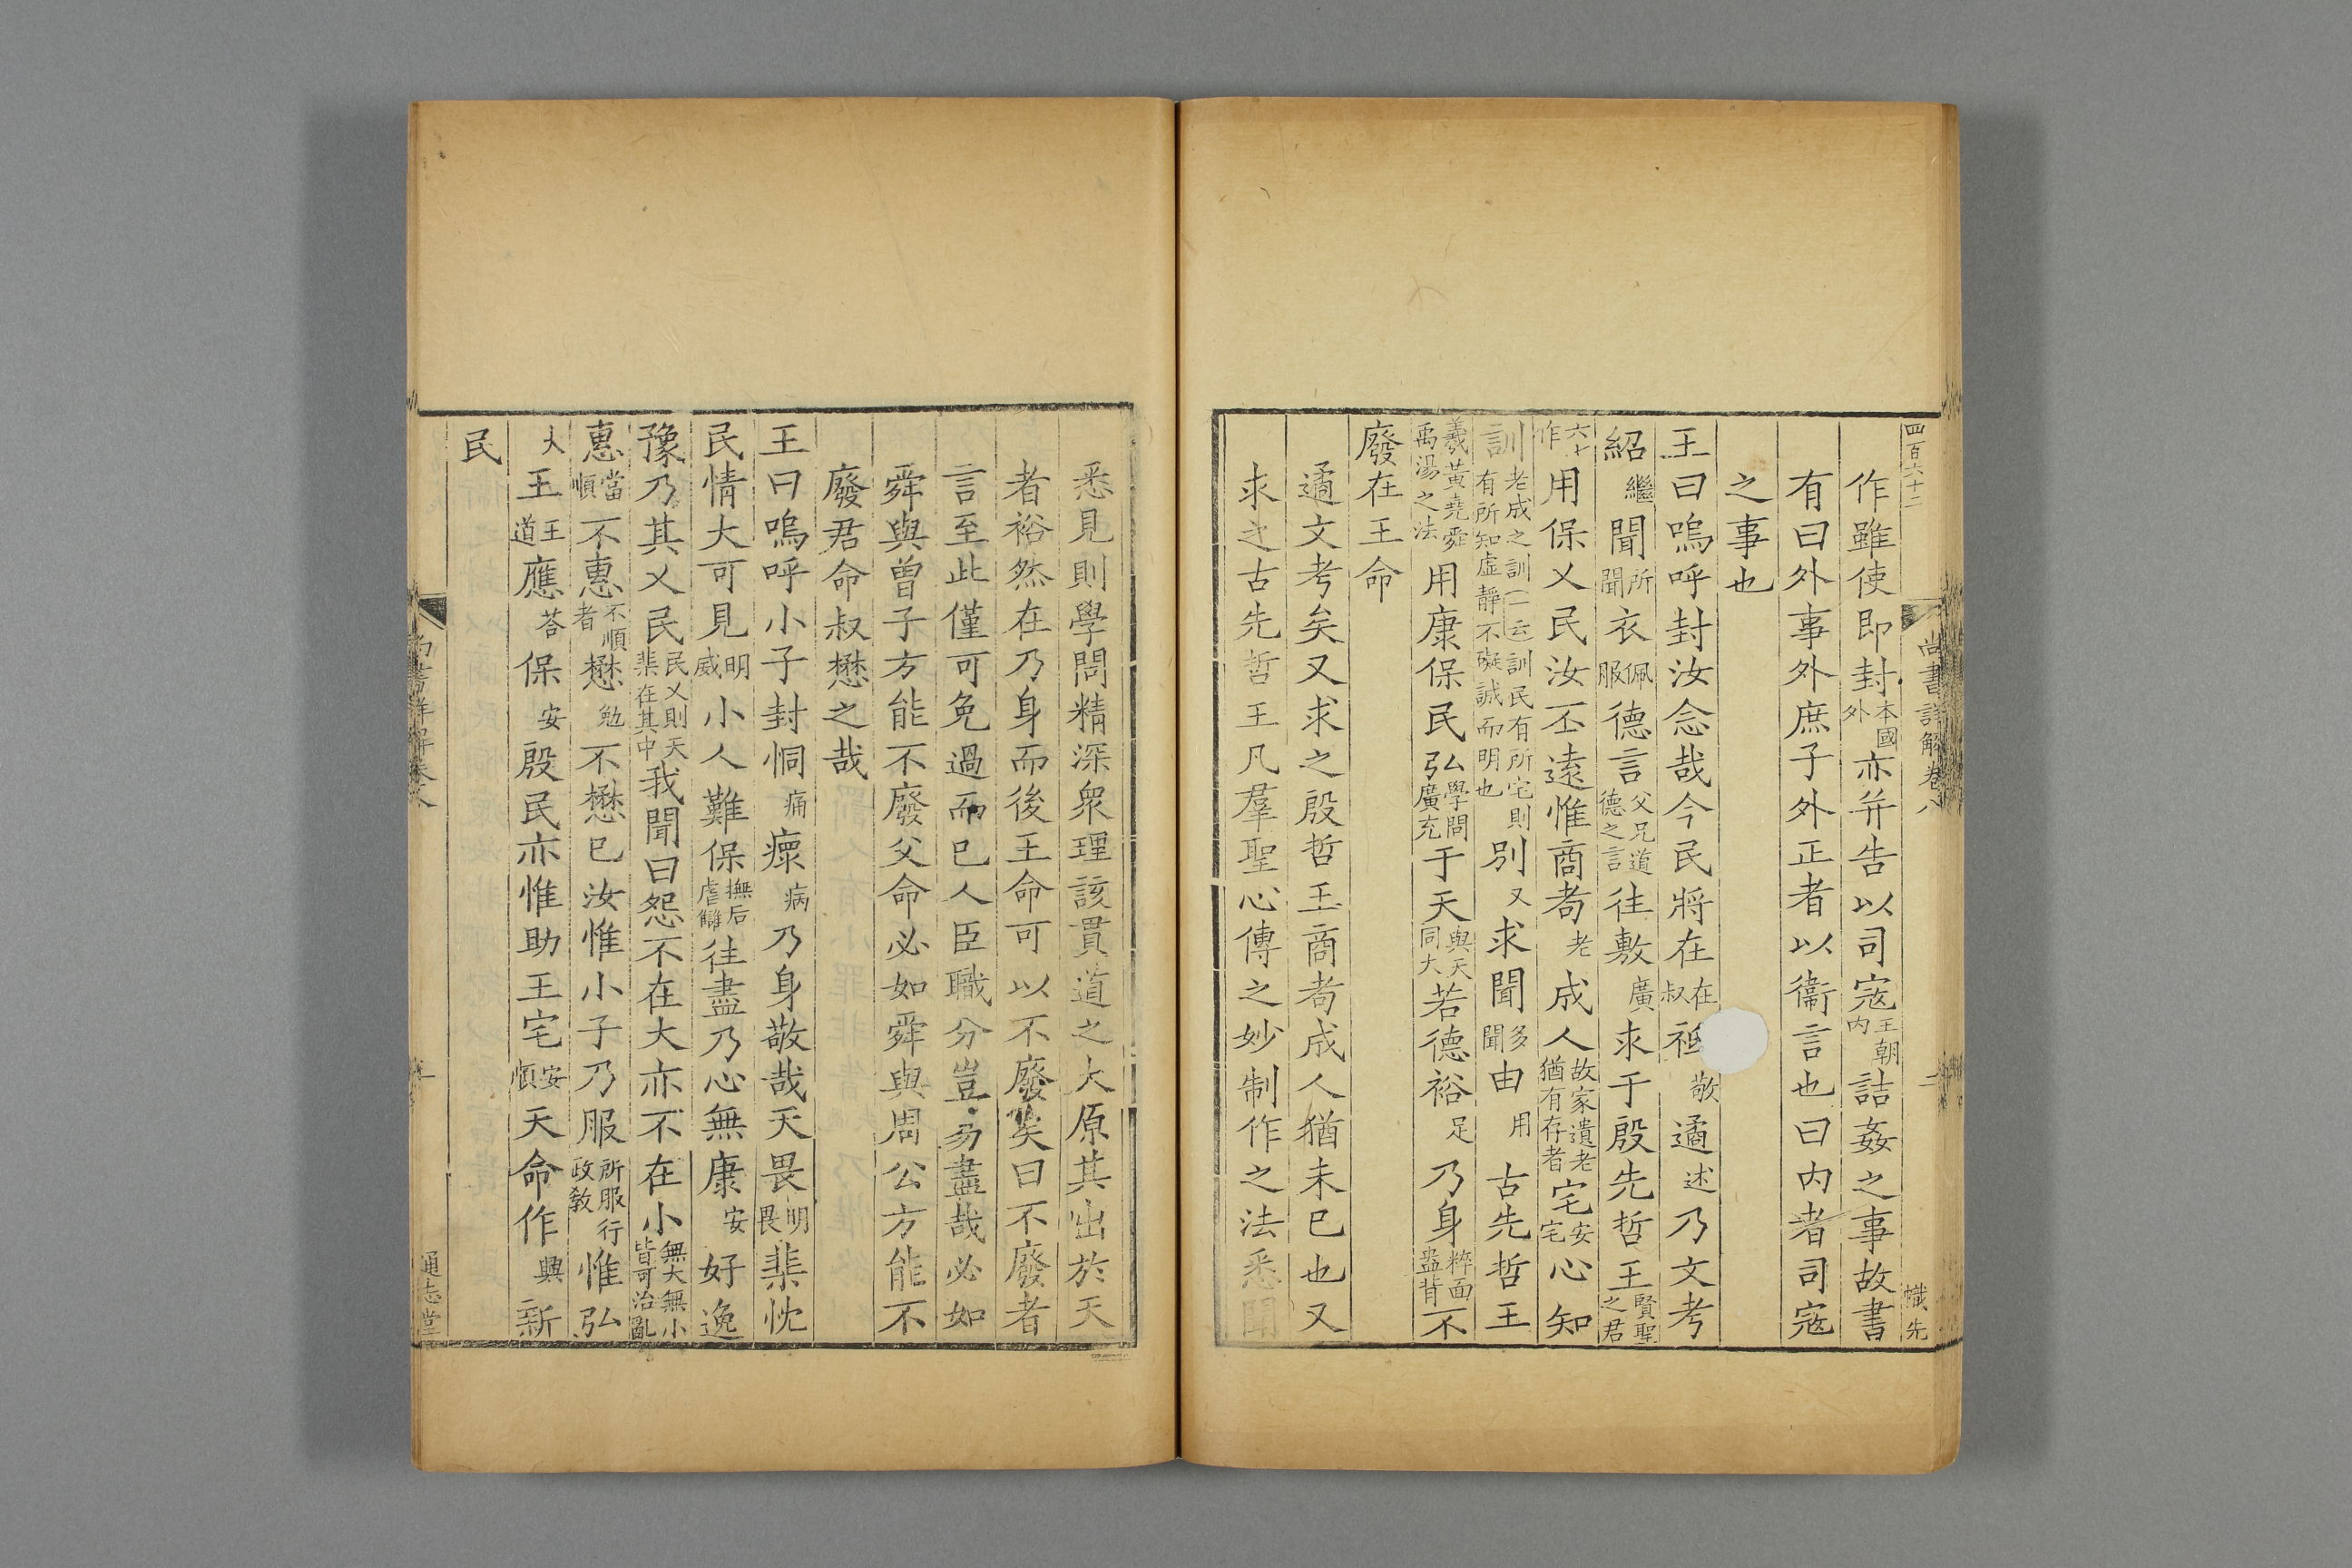 四百六十二 尚書詳解卷八 二 幟先
作雖使即封本國外亦并告以司寇王朝内詰姦之事故書
有曰外事外庶子外正者以衞言也曰内者司寇
之事也
王曰嗚呼封汝念哉今民將在在叔祗敬遹述乃文考
紹繼聞所聞衣佩服德言父兄道德之言往敷廣求于殷先哲王賢聖之君
六七作用保乂民汝丕遠惟商耇老成人故家遺老猶有存者宅安宅心知
訓老成之訓一云訓民有所宅則有所知虛靜不礙誠而明也別又求聞多聞由用古先哲王
羲黃堯舜禹湯之法用康保民弘學問廣充于天與天同大若德裕足乃身粹面盎背不
廢在王命
遹文考矣又求之殷哲王商耇成人猶未已也又
求之古先哲王凡羣聖心傳之妙制作之法悉聞
悉見則學問精深衆理該貫道之大原其出於天
者裕然在乃身而後王命可以不廢矣曰不廢者
言至此僅可免過而已人臣職分豈易盡哉必如
舜與曾子方能不廢父命必如舜與周公方能不
廢君命叔懋之哉
王曰嗚呼小子封恫痛瘝病乃身敬哉天畏明畏棐忱
民情大可見明威小人難保撫后虐讎往盡乃心無康安好逸
豫乃其乂民民乂則天棐在其中我聞曰怨不在大亦不在小無大無小皆可治亂
惠當順不惠不順者懋勉不懋已汝惟小子乃服所服行政敎惟弘
大王王道應荅保安殷民亦惟助王宅安順天命作興新
民
尚書詳解卷八 通志堂